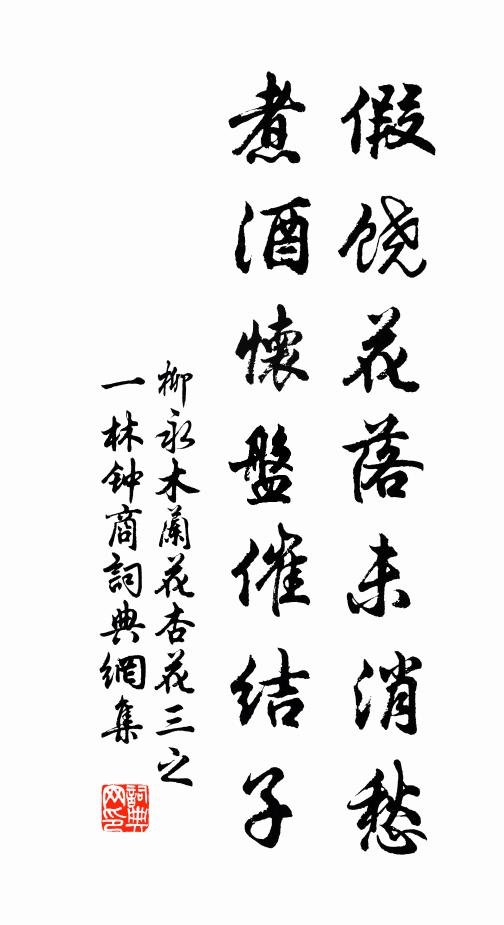 假饶花落未消愁
煮酒懷盤催结子
柳永木蘭花杏花三之
一林钟商詞典網集
詞典网印